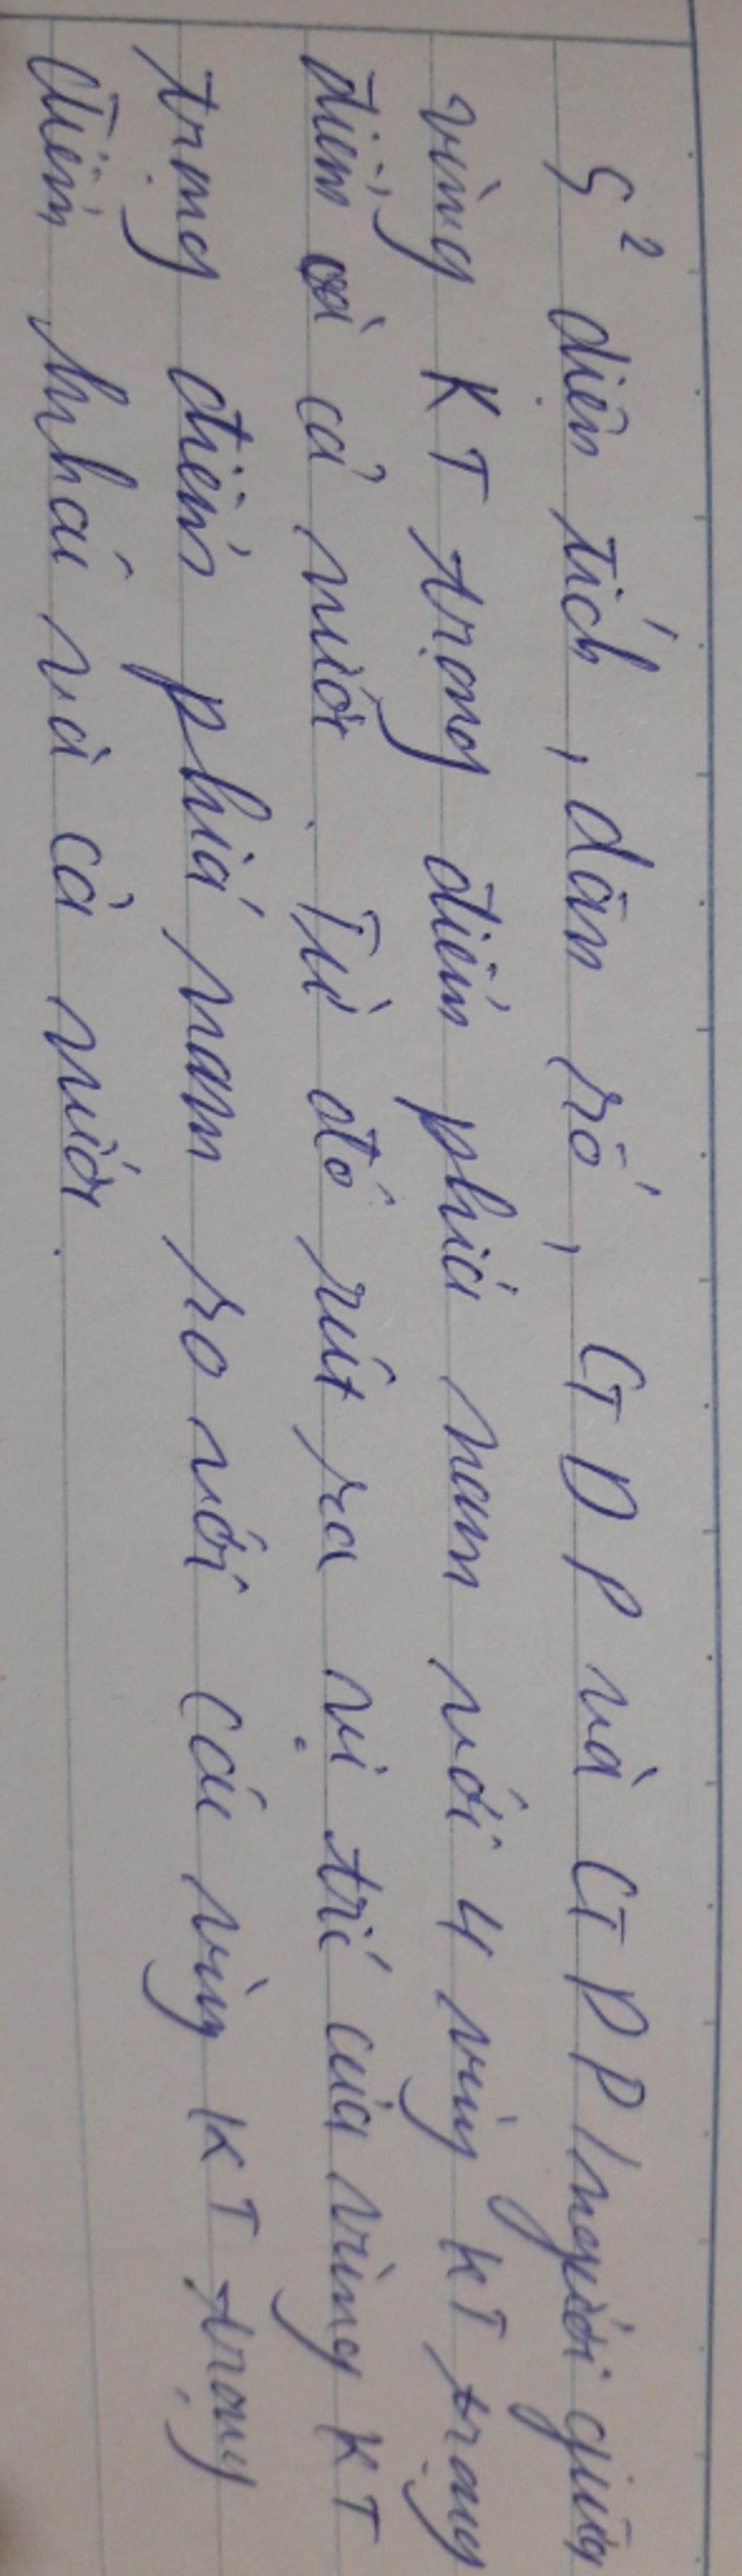 ς² diện tích, dân số, GDP và GDP/người giữa
vùng KT trọng điểm phía nam với 4 vùng KT trọng
điểm và cả nước. Từ đó rút ra vị trí của vùng KT
trọng điểm phía nam so với các vùng KT trọng
điểm khác và cả nước.